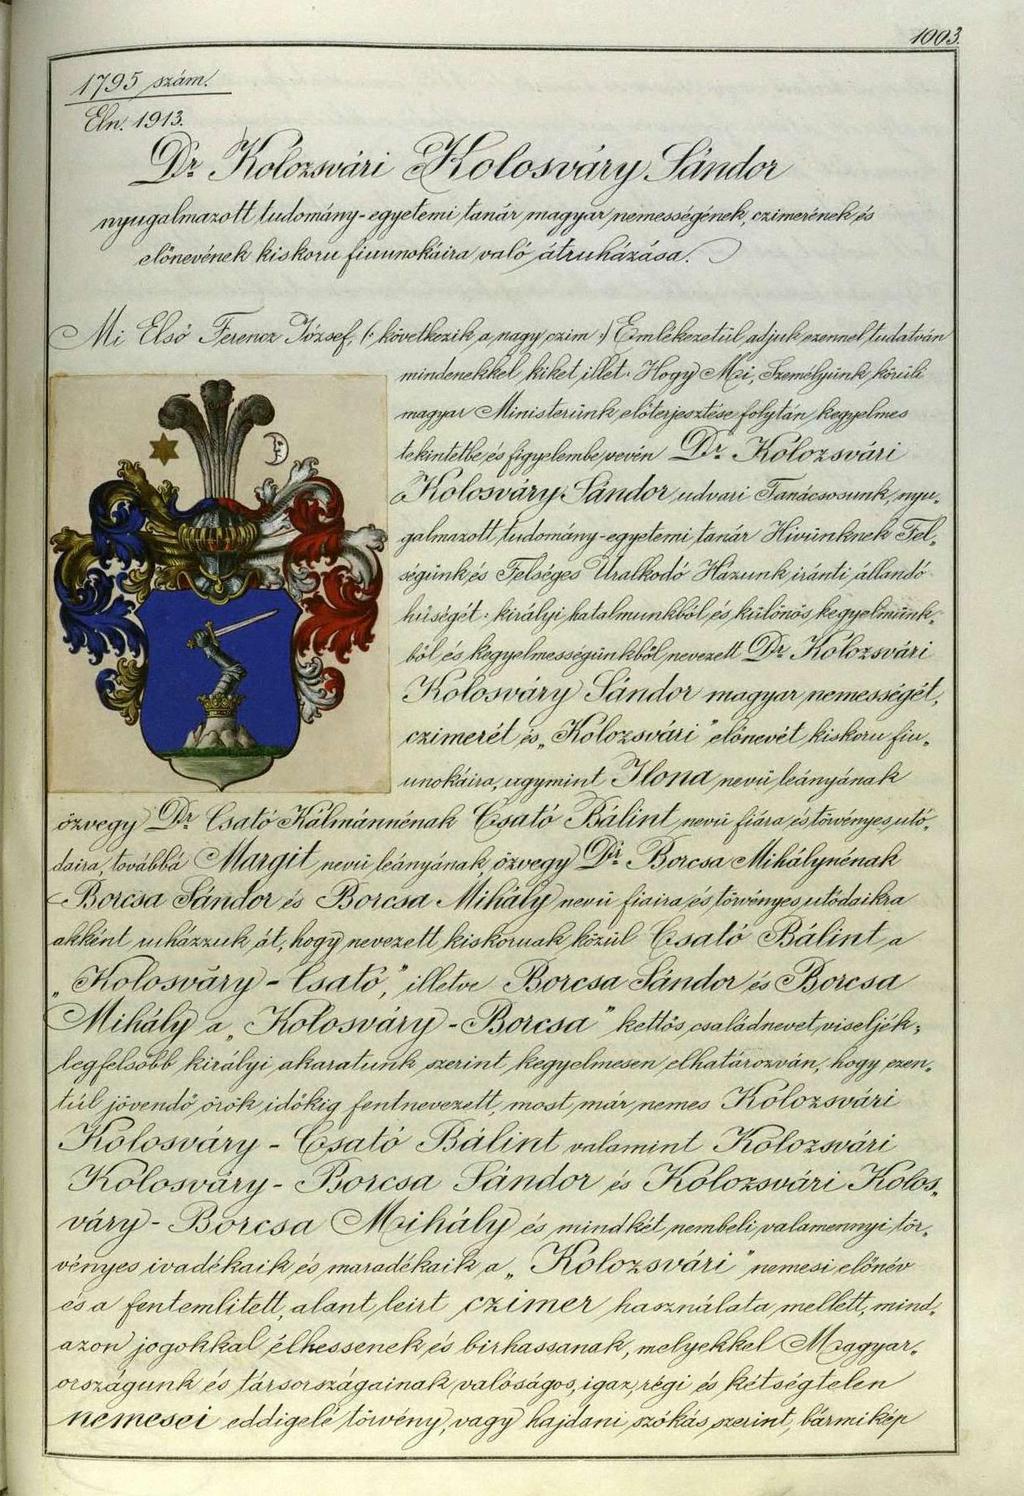 1003.
1795 szám.
Eln. 1913.
Dr Kolozsvári Kolosváry Sándor
nyugalmazott tudomány-egyetemi tanár magyar nemességének, czimerének és
előnevének kiskoru fiuunokáira való átruházása.
Mi Első Ferencz József, (: következik a nagy czim :) Emlékezetül adjuk ezennel tudatván
mindenekkel, kiket illet: Hogy Mi, Személyünk körüli
magyar Ministerünk előterjesztése folytán kegyelmes
tekintetbe és figyelembe vevén Dr Kolozsvári
Kolosváry Sándor udvari Tanácsosunk, nyu„
galmazott tudomány-egyetemi tanár Hivünknek Fel„
ségünk és Felséges Uralkodó Házunk iránti állandó
hűségét: királyi hatalmunkból és különös kegyelmünk„
ből és kegyelmességünkből nevezett Dr Kolozsvári
Kolosváry Sándor magyar nemességét,
czimerét és „Kolozsvári" előnevét kiskoru fiu„
unokáira, ugymint Ilona nevü leányának
özvegy Dr Csató Kálmánnénak Csató Bálint nevü fiára és törvényes utó„
daira, továbbá Margit nevü leányának, özvegy Dr Borcsa Mihálynénak
Borcsa Sándor és Borcsa Mihály nevü fiaira és törvényes utódaikra
akként ruházzuk át, hogy nevezett kiskoruak közül Csató Bálint a
„Kolosváry-Csató," illetve Borcsa Sándor és Borcsa
Mihály a „Kolosváry-Borcsa" kettős családnevet viseljék;
legfelsőbb királyi akaratunk szerint kegyelmesen elhatározván, hogy ezen„
túl jövendő örök időkig fentnevezett, most már nemes Kolozsvári
Kolosváry - Csató Bálint valamint Kolozsvári
Kolosváry - Borcsa Sándor és Kolozsvári Kolos„
váry - Borcsa Mihály és mindkét nembeli valamennyi tör„
vényes ivadékaik és maradékaik a „Kolozsvári" nemesi előnév
és a fentemlitett, alant leirt czimer használata mellett, mind„
azon jogokkal élhessenek és birhassanak, melyekkel Magyar„
országunk és társországainak valóságos, igaz, régi és kétségtelen
nemesei eddigelé törvény, vagy hajdani szokás szerint, bármikép